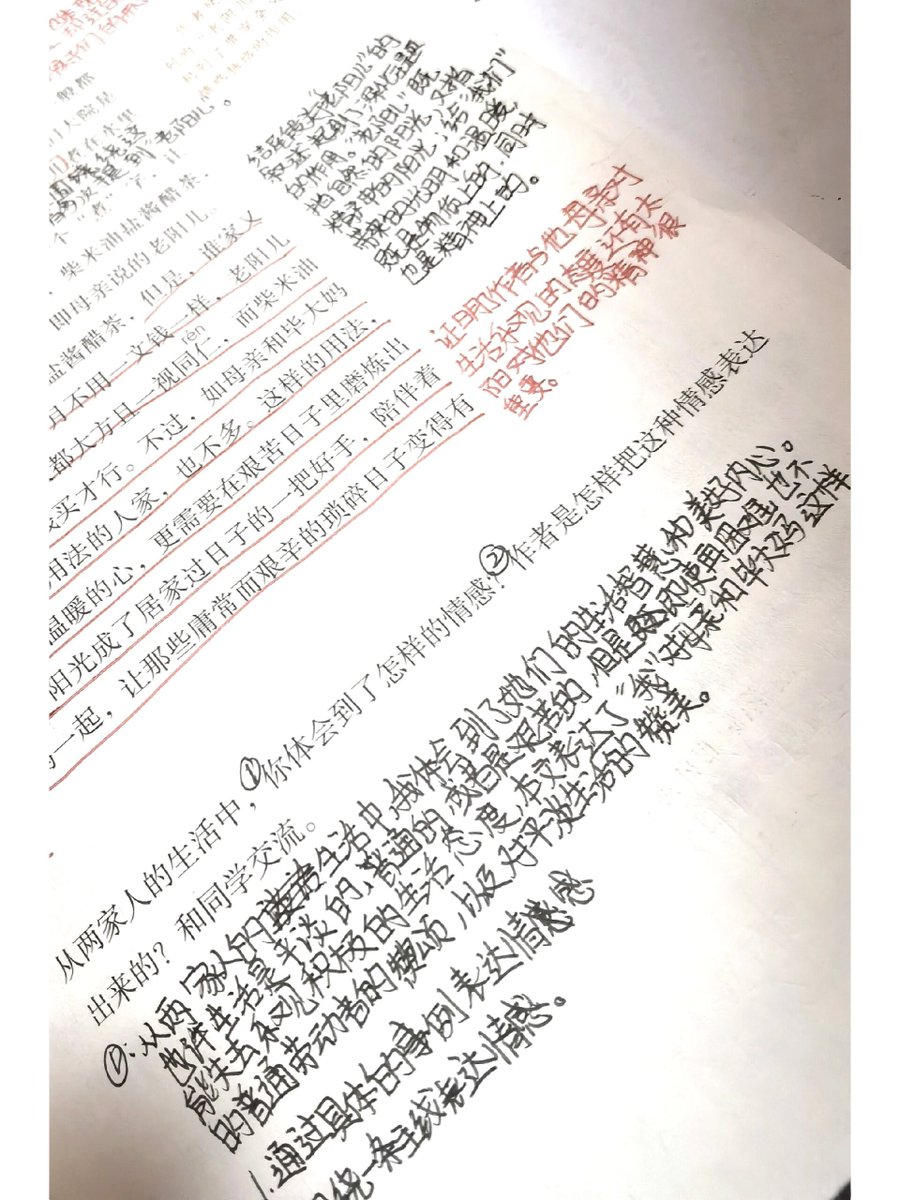 般都
大院是
老阳儿。
柴米油盐酱醋茶，
即母亲说的老阳儿。
盐酱醋茶，但是，谁家又
且不用一文钱一样，老阳儿
rén
都大方且一视同仁，而柴米油
买才行。不过，如母亲和毕大妈
用法的人家，也不多。这样的用法，
温暖的心，更需要在艰苦日子里磨炼出
阳光成了居家过日子的一把好手，陪伴着
一起，让那些庸常而艰辛的琐碎日子变得有
结尾
“老阳儿”的
叙述起到了
点题
的作用。“老阳儿”既
指自然的阳光，又指
精神的阳光，给“我们”
带来的光明和温暖，
既是物质上的，同时
也是精神上的。
证明作者与他母亲对
生活乐观的态度还有太
阳对他们的精神很
重要。
从两家人的生活中，①你体会到了怎样的情感？②作者是怎样把这种情感表达
出来的？和同学交流。
①：从两家人的生活中，我体会到了她们的生活智慧和美好内心。
也许生活是平淡的，普通的，或者是艰苦的，但是即使再困难也不
能失去乐观积极的生活态度，本文表达了“我”对母亲和毕大妈这样
的普通劳动者的赞颂，以及对平淡生活的赞美。
1.通过具体的事例表达情感
绕一条主线表达情感。